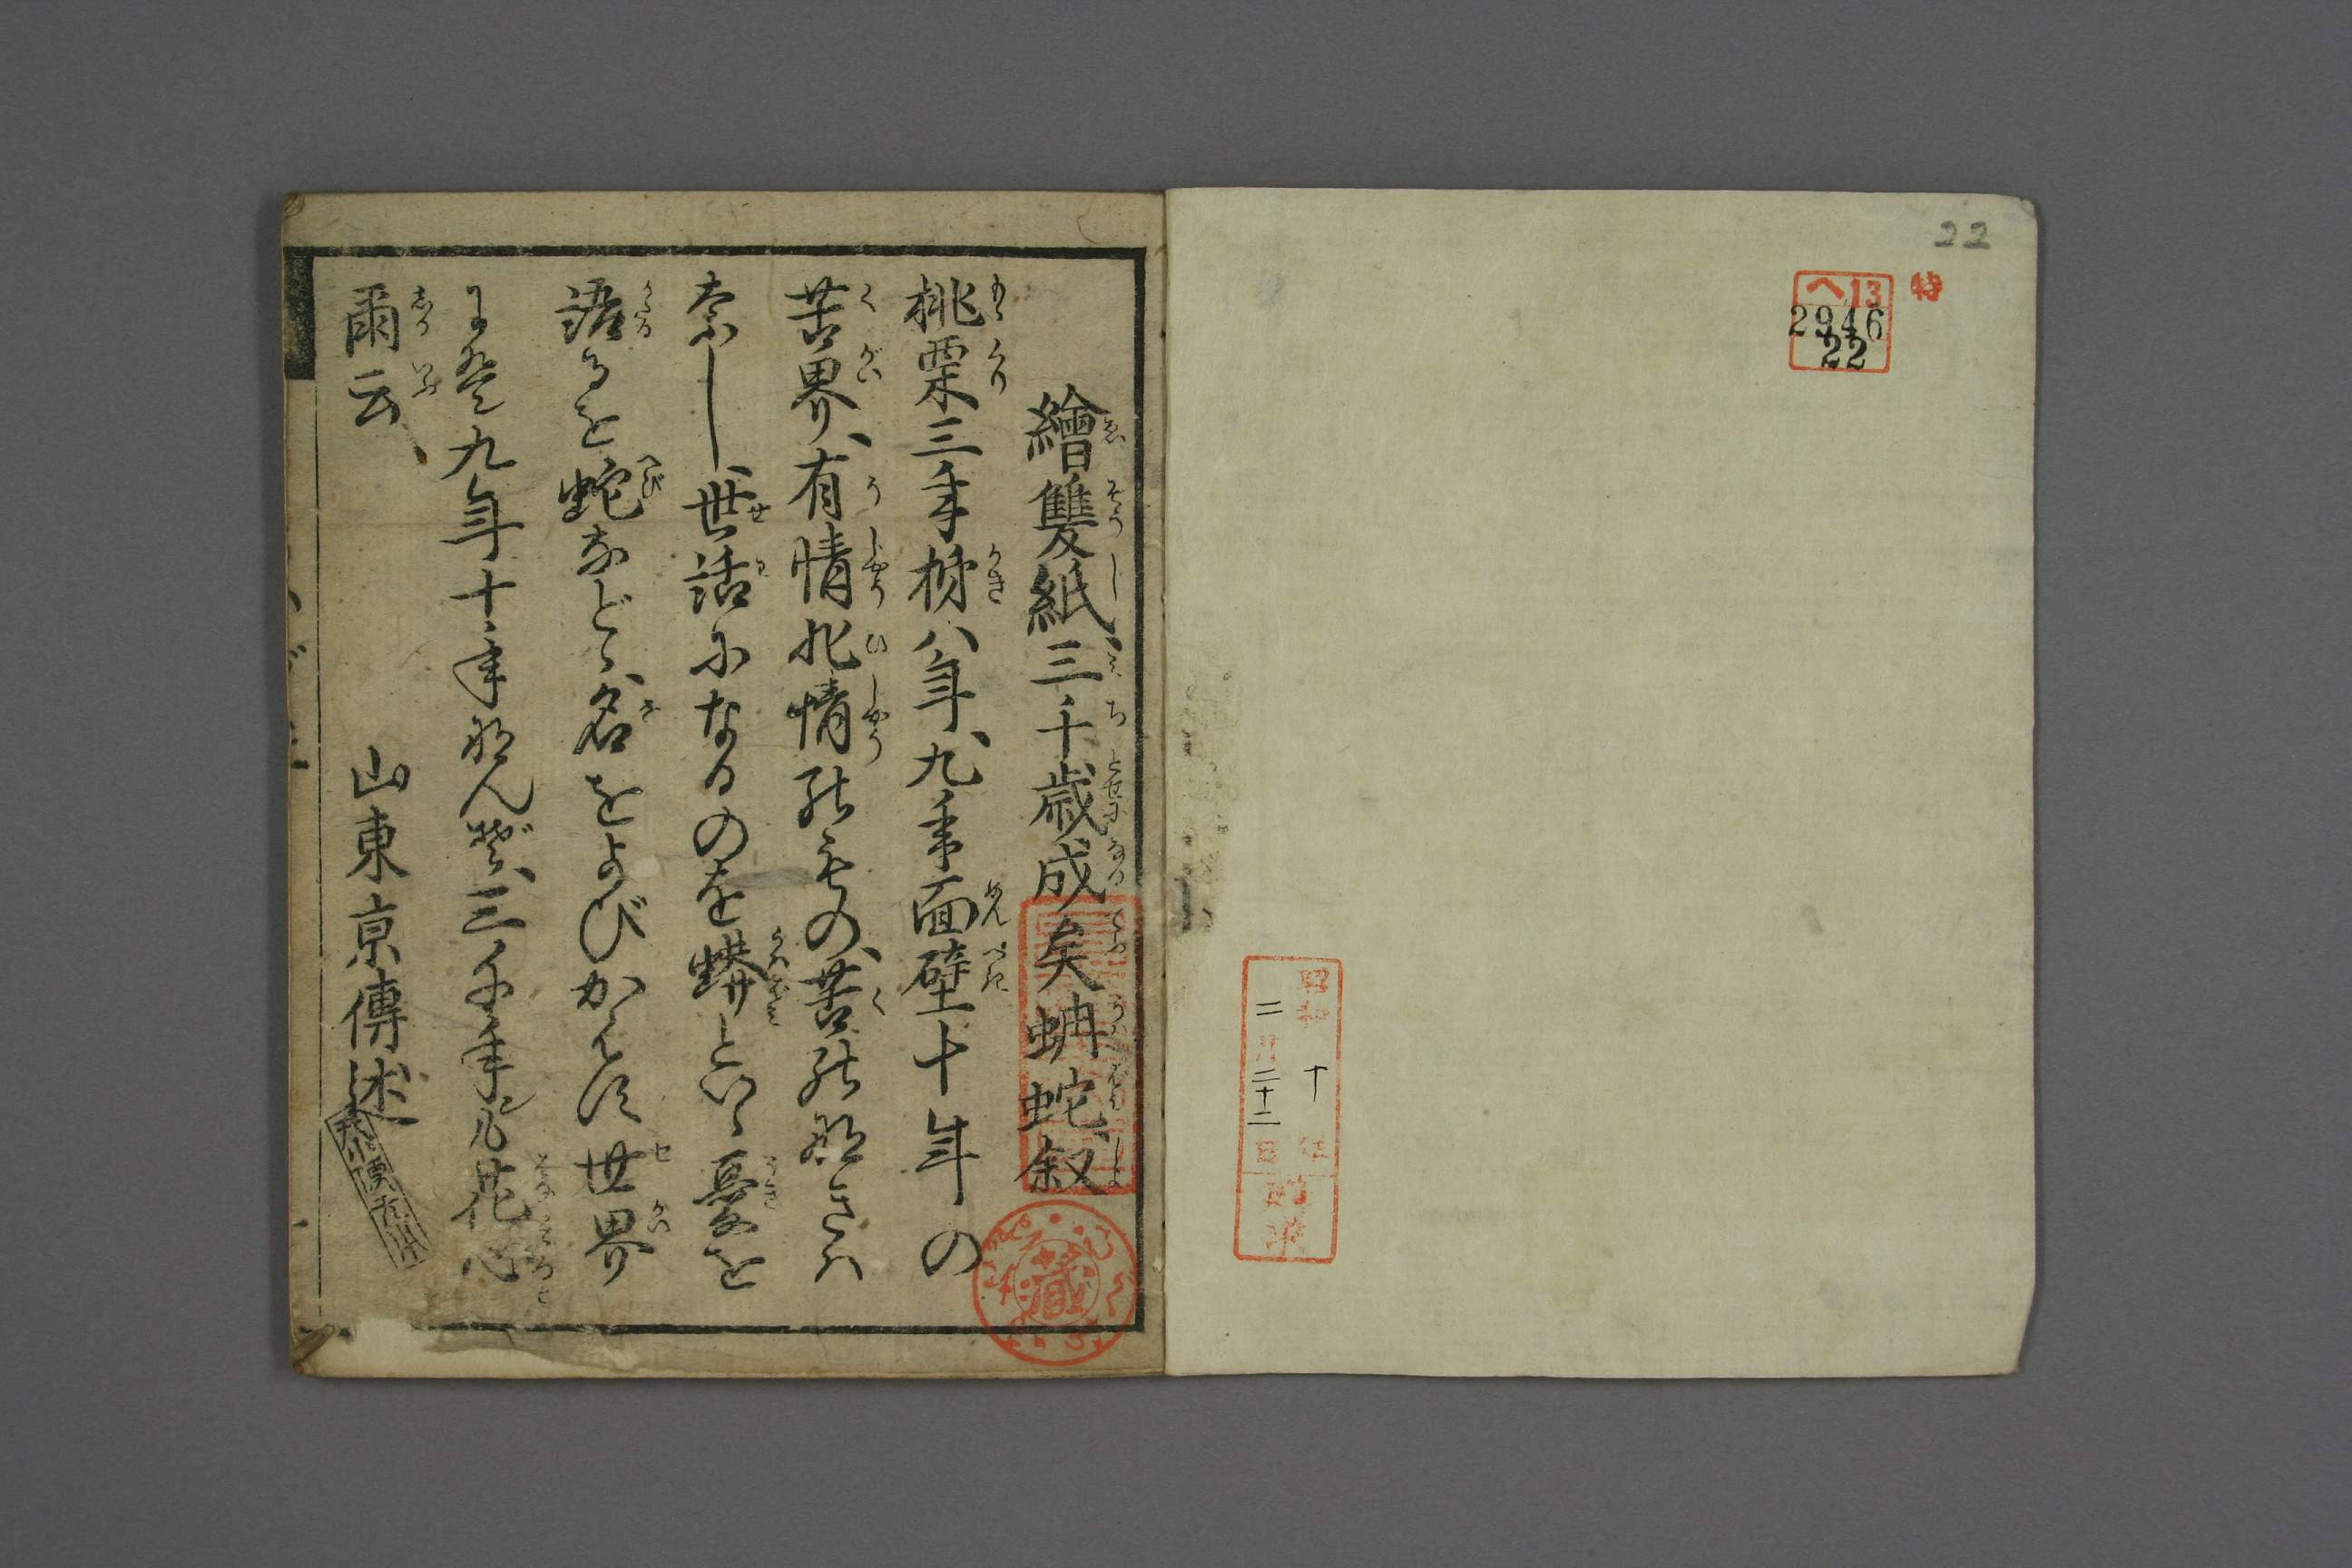 22
特
ヘ13
2946
22
昭和十年
二月二十二日
繪雙紙三千歳成矣蚺蛇叙
桃栗三年柹八年、九年面壁十年の
苦界、有情非情のもの、苦のなきハ
なし、世話になるのを蟒といひ、憂を
語るを蛇などゝ、名をよびかえて世界
九年十年なんぞ、三千年も花心
爾云、
山東京傳述
藏